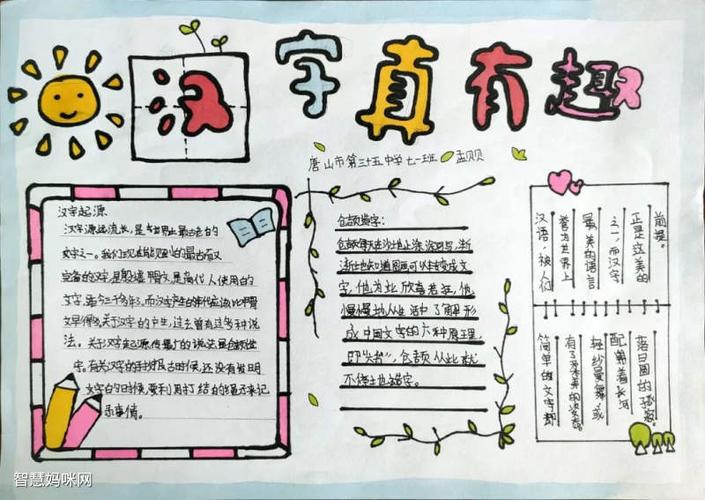 汉字真有趣
唐山市第三十五中学七一班 孟贝贝
汉字起源
汉字源起流长,是世界上最古老的
文字之一。我们现在能见到的最古而又
完备的汉字,是殷墟甲骨文,是商代人使用的
文字,距今三千多年,而汉字产生的年代应该比甲骨
文早得多。关于汉字的产生,过去曾有过多种说
法。关于汉字起源,传最广的说法是仓颉造
字。有关汉字的
文字的时候,要利用打结的绳子来记
录事情。
仓颉造字:
仓颉每天在沙地上涂涂写写,渐
渐也知道图画可以转变成文
字,他为此欣喜若狂,他
慢慢地从生活中了解形
成中国文字的六种原理,
即"六书",仓颉从此就
不停止地造字。
前提。
正是立美的
之一,而汉字
最美的语言
誉为世界上
汉语,被人们
落日圆的孤寂。
配 着长河
轻纱曼舞,或
有了柔美的姿态。
简单的文字都
智慧妈咪网